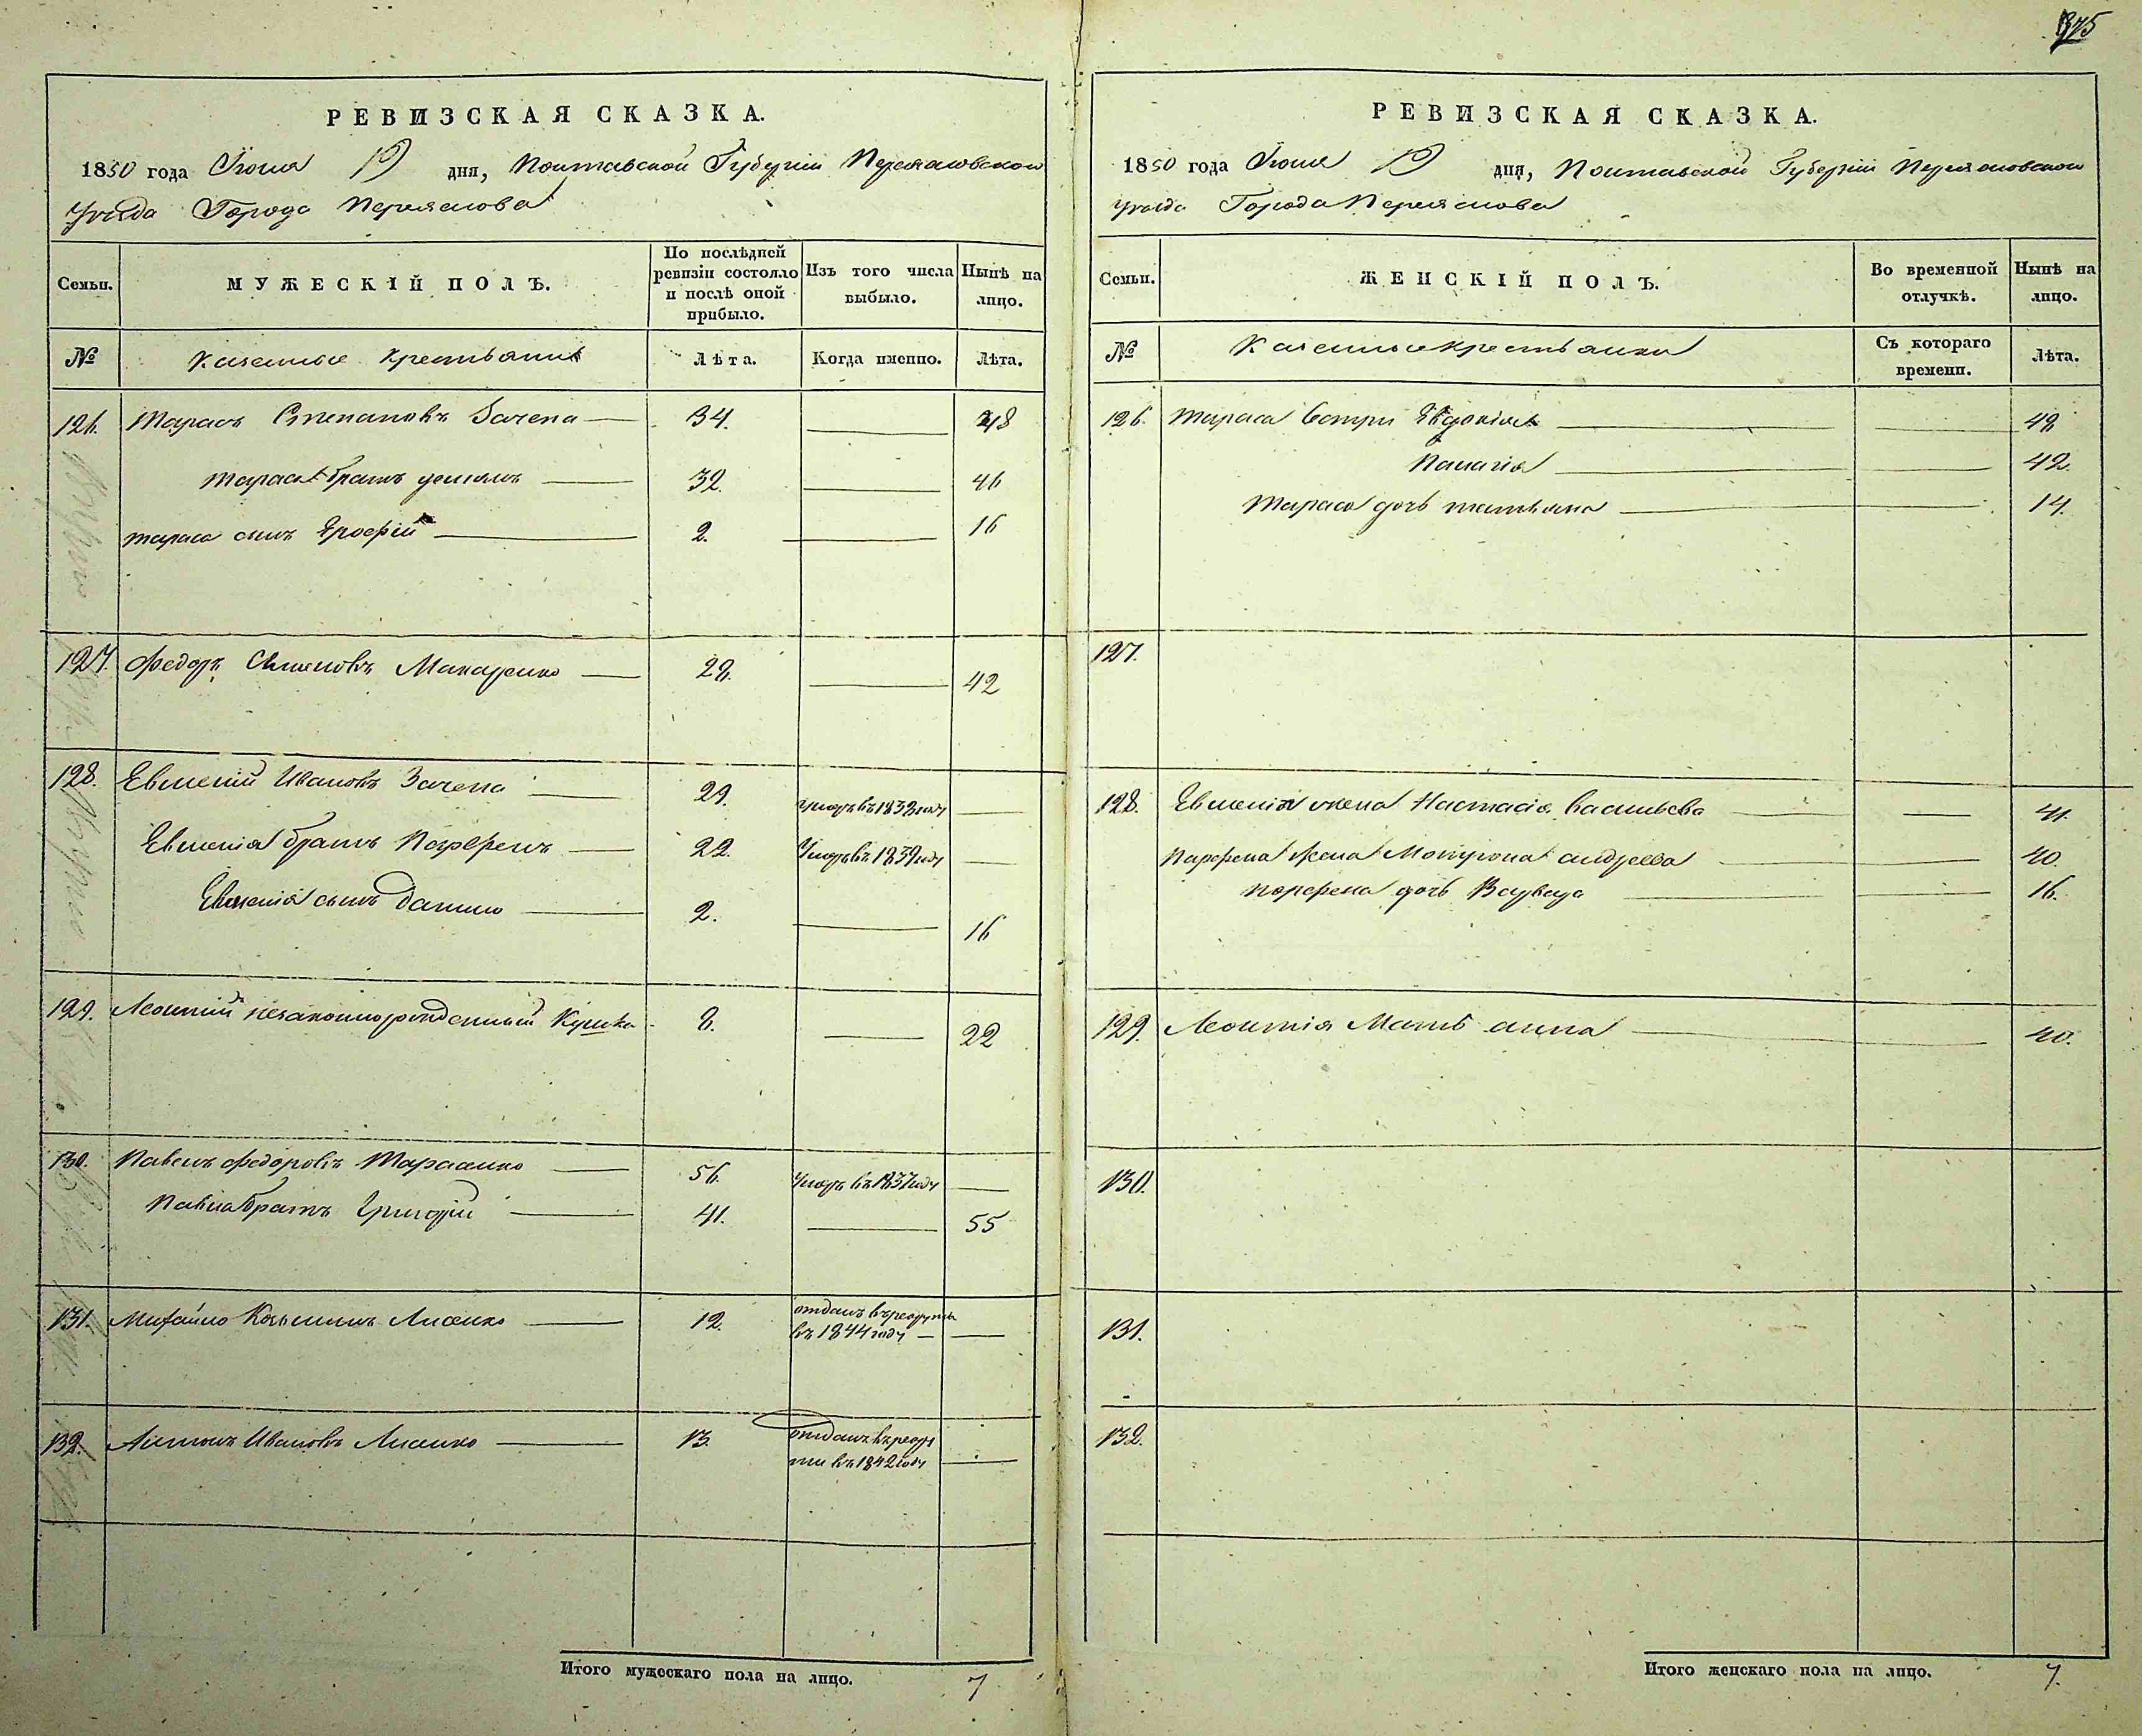 375
РЕВИЗСКАЯ СКАЗКА.
1850 года Іюня 19 дня, Полтавской Губерніи Переяловского
Уезда Города Переяслова
Семьи.
МУЖЕСКІЙ ПОЛЪ.
По послѣдней ревизіи состояло и послѣ оной прибыло.
Изъ того числа выбыло.
Нынѣ на лицо.
№
Казенные крестьяне
Лѣта.
Когда именно.
Лѣта.
126. Тарасъ Степановъ Зачепа 34. 48
Тараса братъ 32. 46
Тараса сынъ Ерофій 2. 16
127. Федоръ Семеновъ Макаренко 28. 42
128. Евменій Ивановъ Зачепа 29. умеръ въ 1838 году
Евменія братъ Парфенъ 22. Умеръ въ 1839 году
Евменія сынъ Данило 2. 16
129. Леонтій незаконнорожденный 8. 22
130. Павелъ Федоровъ Тарасенко 56. Умеръ въ 1837 году
Павла братъ Григорій 41. 55
131. Михайло Козьминъ Лисенко 12. отданъ въ рекруты
въ 1844 году
132. Антонъ Ивановъ Лисенко 13. отданъ въ рекру
ты въ 1842 году
Итого мужескаго пола на лицо. 7
РЕВИЗСКАЯ СКАЗКА.
1850 года Іюня 19 дня, Полтавской Губерніи Переясловского
Уезда Города Переяслова
Семьи.
ЖЕНСКІЙ ПОЛЪ.
Во временной отлучкѣ.
Нынѣ на лицо.
№
Казенные крестьянки
Съ котораго времени.
Лѣта.
126. Тараса Сестры Евдокія 48
Палагія 42.
Тараса дочь Татьяна 14.
127.
128. Евменія жена Настасія Васильева 41.
Парфена жена Мотрона Андреева 40.
Парфена дочь Варвара 16.
129. Леонтія Мать Анна 40.
130.
131.
132.
Итого женскаго пола на лицо. 7.